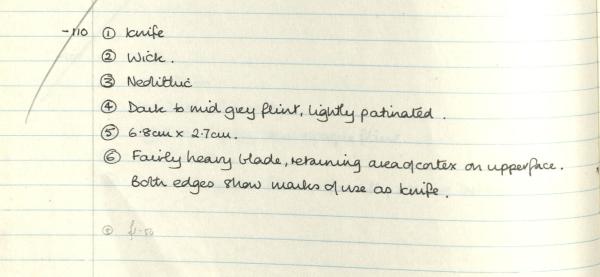 -110 ① Knife
② Wick.
③ Neolithic
④ Dark to mid grey flint, lightly patinated.
⑤ 6.8cm x 2.7cm.
⑥ Fairly heavy blade, retaining area of cortex on upper face.
Both edges show marks of use as knife.